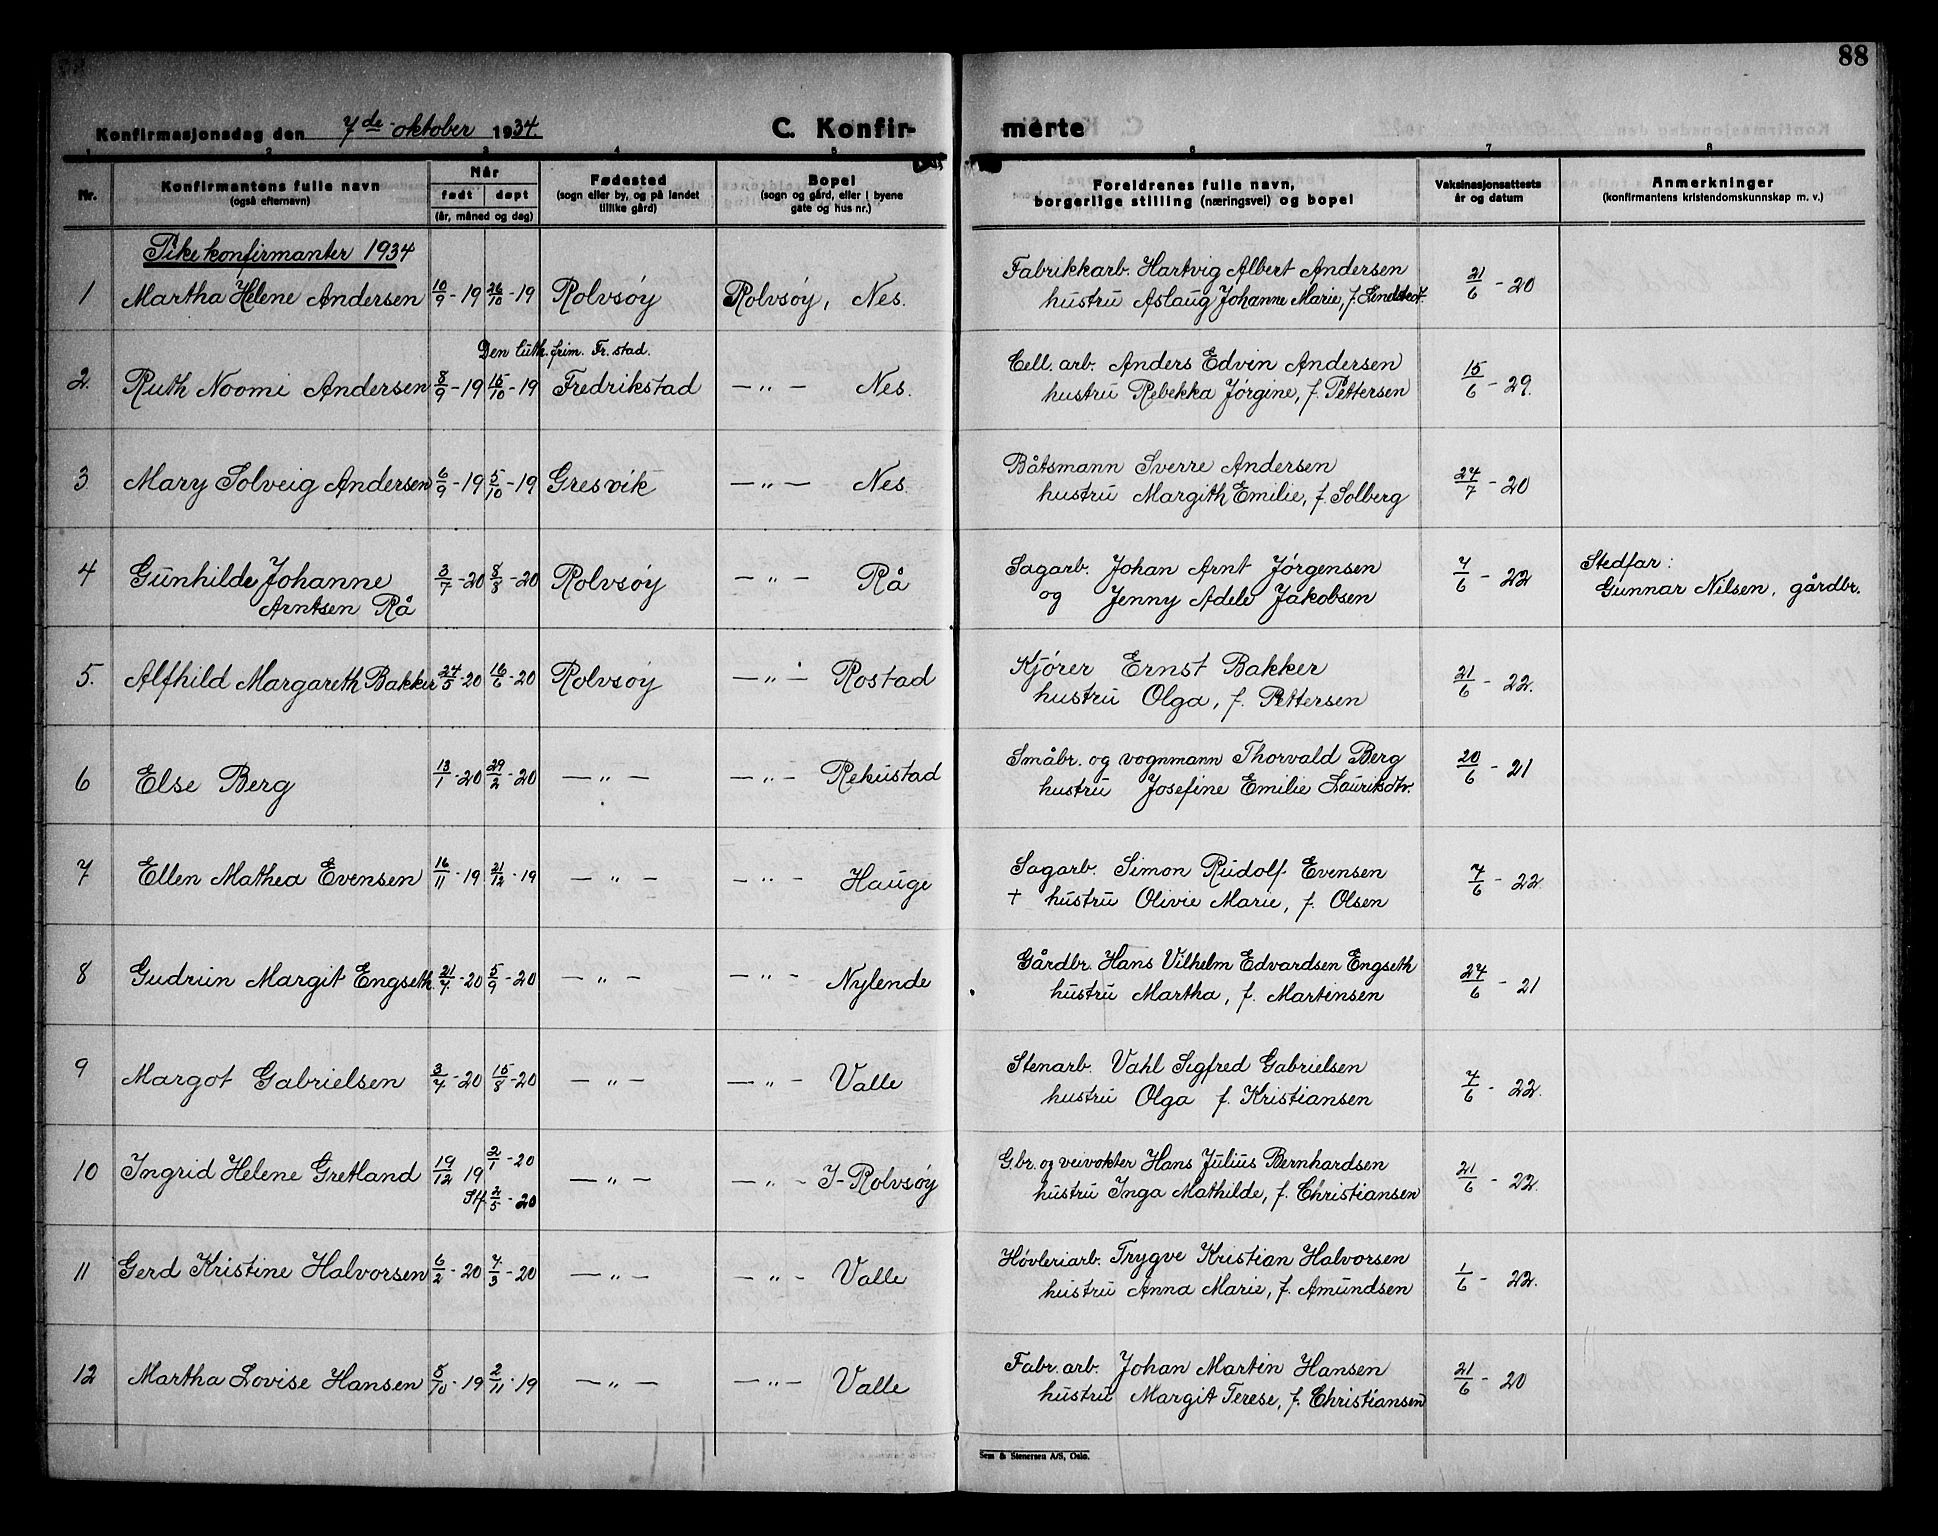 88
Konfirmasjonsdag den 7de oktober 1934. C. Konfir- merte
1 2 3 4 5 6 7 8
Nr. Konfirmantens fulle navn (også efternavn) Når født døpt (år, måned og dag) Fødested (sogn eller by, og på landet tillike gård) Bopel (sogn og gård, eller i byene gate og hus nr.) Foreldrenes fulle navn, borgerlige stilling (næringsvei) og bopel Vaksinasjonsattests år og datum Anmerkninger (konfirmantens kristendomskunnskap m. v.)
Pikekonfirmanter 1934
1 Martha Helene Andersen 10/9 - 19 26/10 - 19 Rolvsøy Rolvsøy, Nes. Fabrikkarb. Hartvig Albert Andersen 21/6 - 20
hustru Aslaug Johanne Marie, f.
Den luth. frim. Fr. stad.
2. Ruth Noomi Andersen 8/9 - 19 15/10 - 19 Fredrikstad — " — Nes. Cell. arb. Anders Edvin Andersen 15/6 - 29.
hustru Rebekka Jørgine, f. Pettersen
3. Mary Solveig Andersen 6/9 - 19 5/10 - 19 Gresvik — " — Nes. Båtsmann Sverre Andersen 24/7 - 20
hustru Margith Emilie, f. Solberg
4 Gunhilde Johanne 3/7 - 20 8/8 - 20 Rolvsøy — " — Rå Sagarb. Johan Arnt Jørgensen 7/6 - 22 Stedfar:
Arntsen Rå og Jenny Adele Jakobsen Gunnar Nilsen, gårdbr.
5. Alfhild Margareth Bakker 24/5 - 20 16/6 - 20 Rolvsøy — " — Rostad Kjører Ernst Bakker 21/6 - 22.
hustru Olga, f. Pettersen
6 Else Berg 13/1 - 20 29/2 - 20 — " — — " — Rekustad Småbr. og vognmann Thorvald Berg 20/6 - 21
hustru Josefine Emilie Lauriksdtr.
7 Ellen Mathea Evensen 16/11 - 19 21/12 - 19 — " — — " — Hauge Sagarb. Simon Rudolf Evensen 7/6 - 22.
† hustru Olivie Marie, f. Olsen
8 Gudrun Margit Engseth 21/7 - 20 5/9 - 20 — " — — " — Nylende Gårdbr. Hans Vilhelm Edvardsen Engseth 24/6 - 21
hustru Martha, f. Martinsen
9 Margot Gabrielsen 3/7 - 20 15/8 - 20 — " — — " — Valle Stenarb. Vahl Sigfred Gabrielsen 7/6 - 22.
hustru Olga f. Kristiansen
10 Ingrid Helene Gretland 19/12 19 2/1 - 20 — " — — " — J-Rolvsøy G.br. og veivokter Hans Julius Bernhardsen 21/6 - 22.
St. 2/5 - 20 hustru Inga Mathilde, f. Christiansen
11 Gerd Kristine Halvorsen 6/2 - 20 7/3 - 20 — " — — " — Valle Høvleriarb. Trygve Kristian Halvorsen 1/6 - 22.
hustru Anna Marie, f. Amundsen
12 Martha Lovise Hansen 5/10 - 19 2/11 - 19 — " — — " — Valle Fabr. arb. Johan Martin Hansen 21/6 - 20
hustru Margit Terese, f. Christiansen
Sem & Stenersen A/S, Oslo.